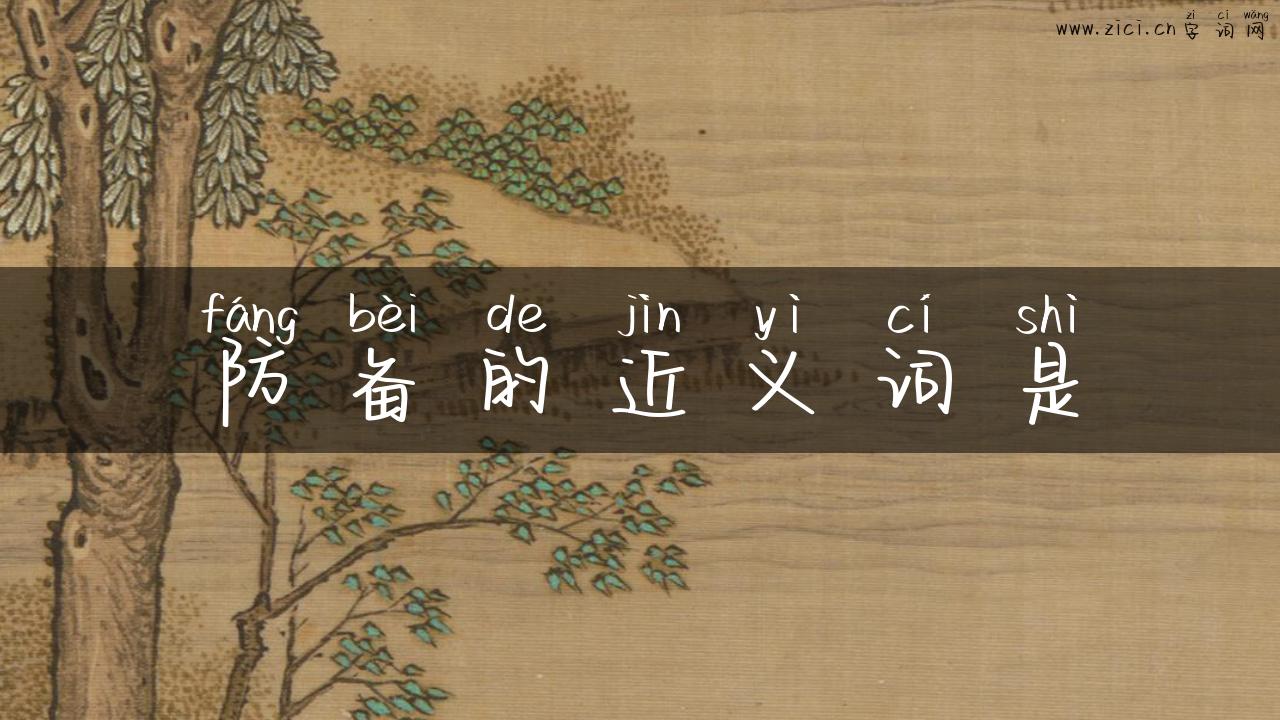 zì cí wǎng
www.zici.cn 字 词 网
fáng bèi de jìn yì cí shì
防 备 的 近 义 词 是